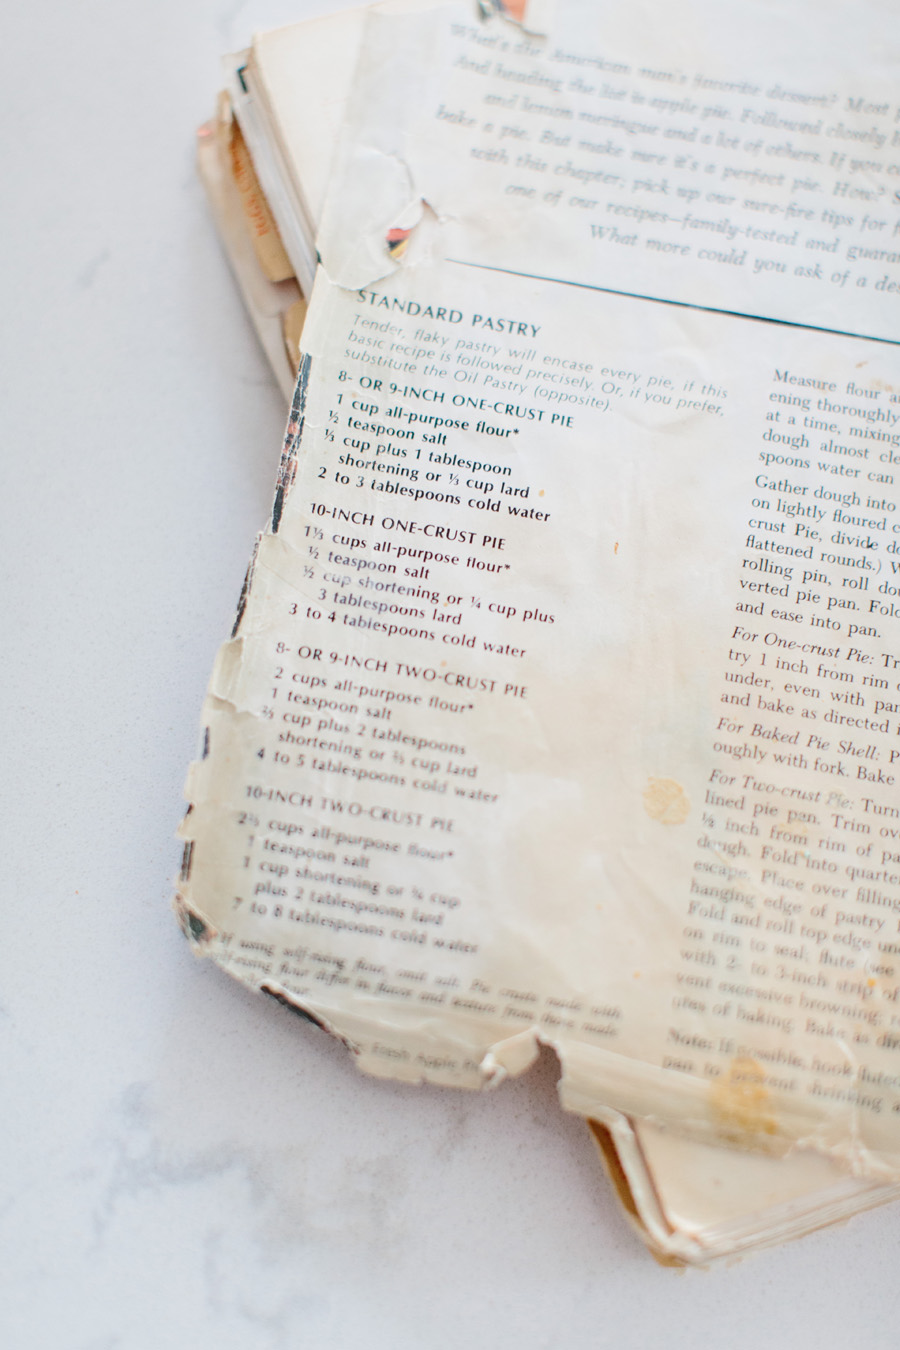 What's the American man's favorite dessert? Most
And heading the list is apple pie. Followed closely
and lemon meringue and a lot of others. If you
bake a pie. But make sure it's a perfect pie. How?
with this chapter, pick up our sure-fire tips for
one of our recipes—family-tested and
What more could you ask of a
STANDARD PASTRY
Tender, flaky pastry will encase every pie, if this
basic recipe is followed precisely. Or, if you prefer,
substitute the Oil Pastry (opposite).
8- OR 9-INCH ONE-CRUST PIE
1 cup all-purpose flour*
½ teaspoon salt
⅓ cup plus 1 tablespoon
shortening or ⅓ cup lard
2 to 3 tablespoons cold water
10-INCH ONE-CRUST PIE
1⅓ cups all-purpose flour*
½ teaspoon salt
½ cup shortening or ¼ cup plus
3 tablespoons lard
3 to 4 tablespoons cold water
8- OR 9-INCH TWO-CRUST PIE
2 cups all-purpose flour*
1 teaspoon salt
⅔ cup plus 2 tablespoons
shortening or ⅔ cup lard
4 to 5 tablespoons cold water
10-INCH TWO-CRUST PIE
2⅔ cups all-purpose flour*
1 teaspoon salt
1 cup shortening or ¾ cup
plus 2 tablespoons lard
7 to 8 tablespoons cold water
If using self-rising flour, omit salt. Pie crusts made with
self-rising flour differ in flavor and texture from those made
flour.
Fresh Apple
Measure flour
ening thoroughly
at a time, mixing
dough almost
spoons water can
Gather dough into
on lightly floured
crust Pie, divide
flattened rounds.)
rolling pin, roll
verted pie pan. Fold
and ease into pan.
For One-crust Pie:
try 1 inch from rim
under, even with
and bake as directed
For Baked Pie Shell:
oughly with fork. Bake
For Two-crust Pie: Turn
lined pie pan. Trim
½ inch from rim of
dough. Fold into
escape. Place over filling
hanging edge of pastry
Fold and roll top edge
on rim to seal, flute (see
with 2- to 3-inch strip of
vent excessive browning;
utes of baking. Bake as
Note: If possible, hook
pan to prevent shrinking